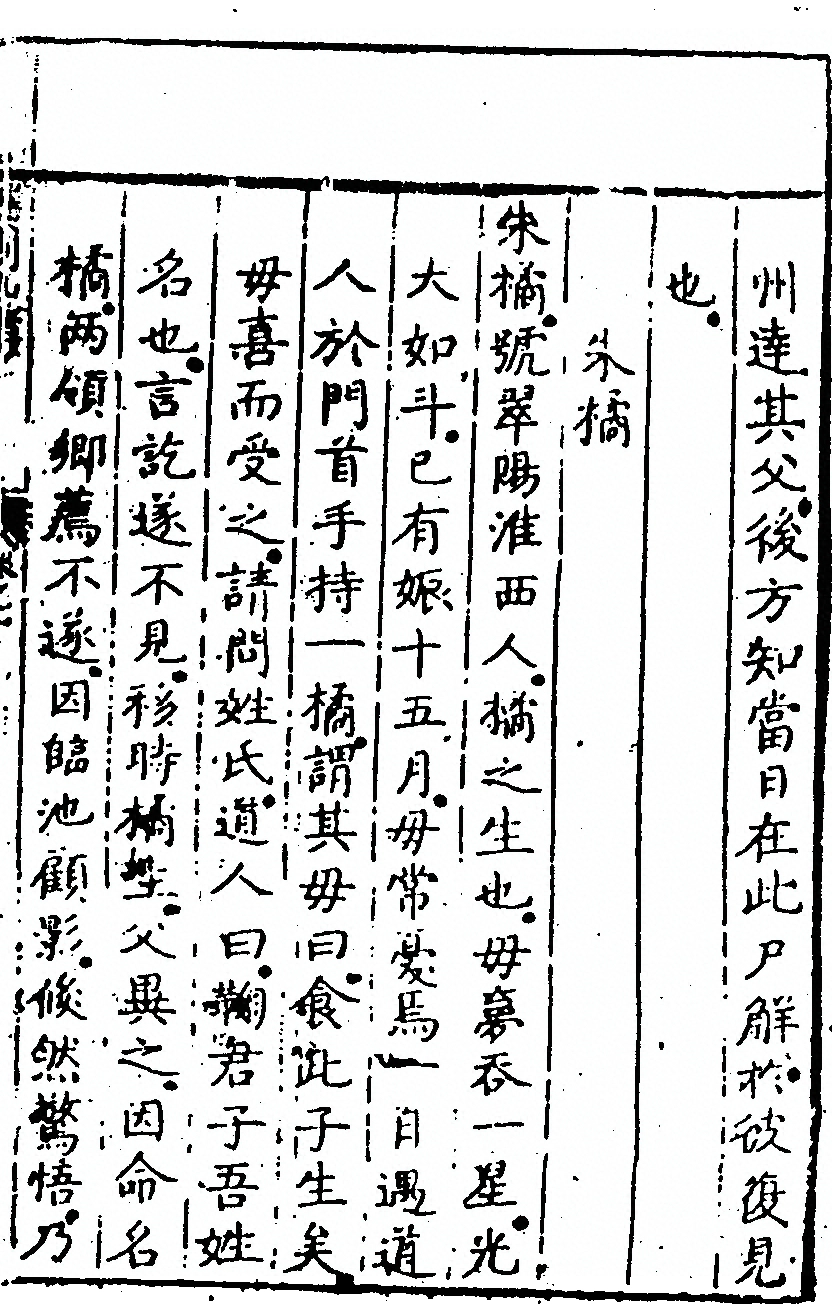 州達其父後方知當日在此尸解於彼復見
也
朱橘
朱橘號翠陽淮西人橘之生也母夢吞一星光
大如斗已有娠十五月母常憂焉一日遇道
人於門首手持一橘謂其母曰食此子生矣
母喜而受之請問姓氏道人曰鞠君子吾姓
名也言訖遂不見移時橘墮父異之因命名
橘兩領鄉薦不遂因臨池顧影倐然驚悟乃